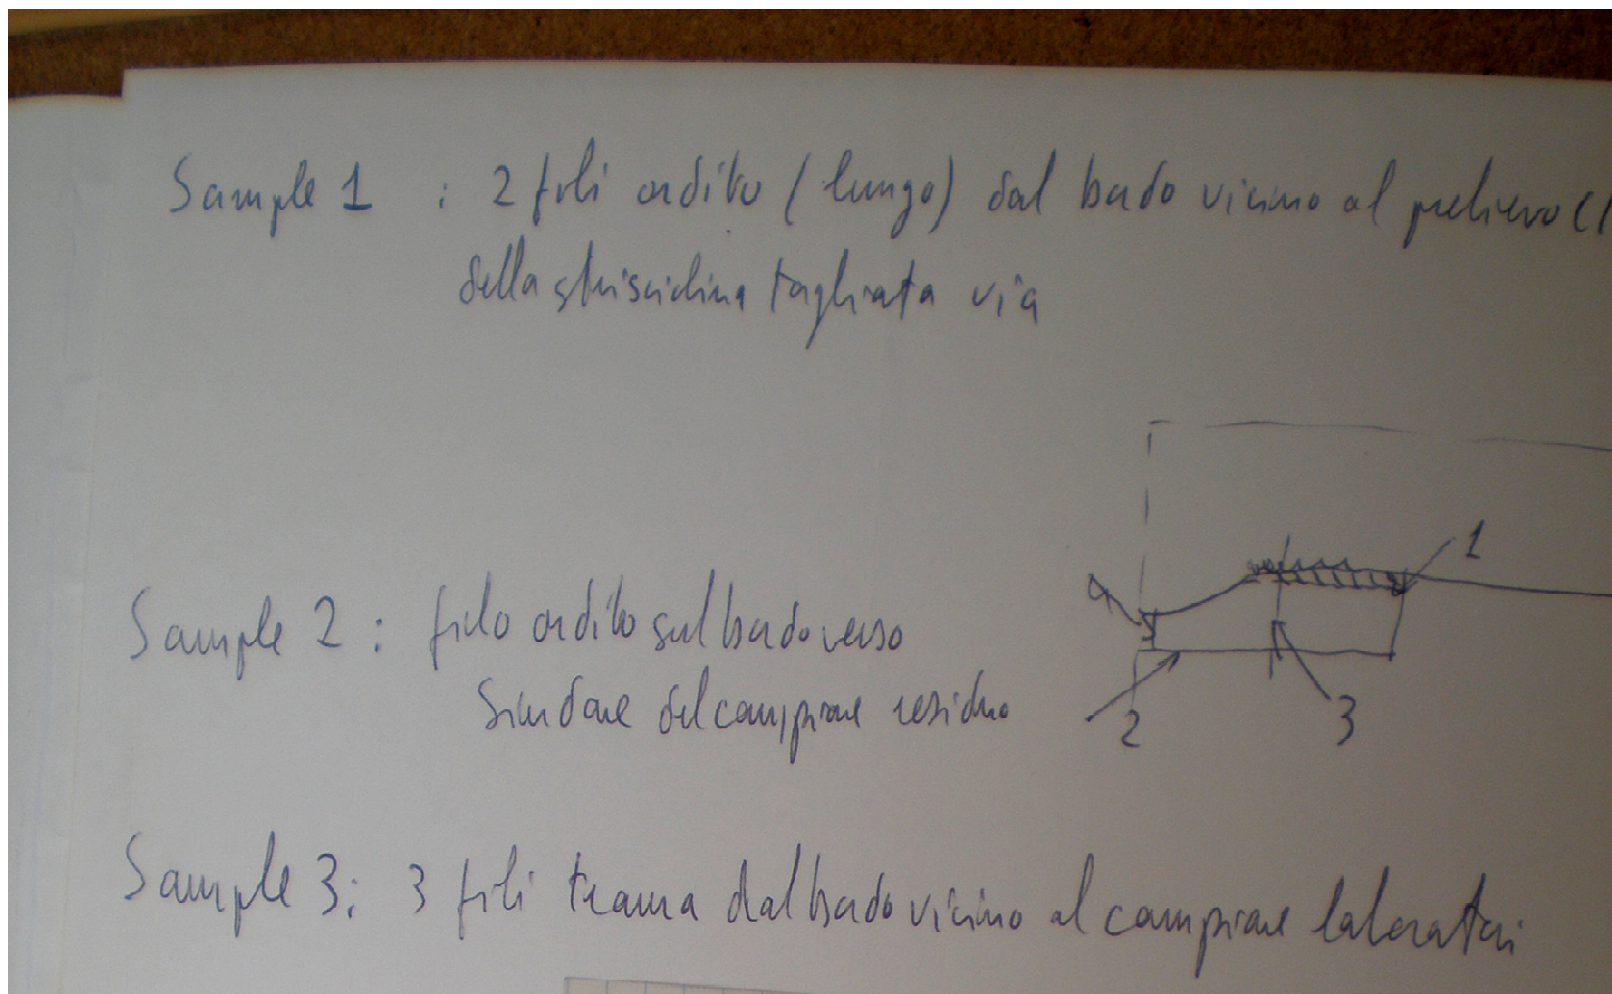 Sample 1 : 2 fili ordito (lungo) dal bordo vicino al prelievo
della strisciolina tagliata via
1
4
Sample 2 : filo ordito sul bordo verso
Sindone del campione residuo
2
3
Sample 3: 3 fili trama dal bordo vicino al campione laboratori